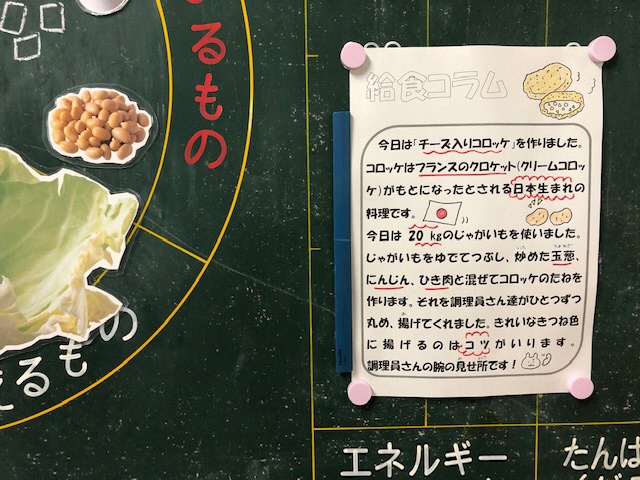 るもの
えるもの
給食コラム
今日は「チーズ入りコロッケ」を作りました。
コロッケはフランスのクロケット(クリームコロッ
ケ)がもとになったとされる日本生まれの
料理です。
今日は 20 kgのじゃがいもを使いました。
じゃがいもをゆでてつぶし、炒めた玉葱、
にんじん、ひき肉と混ぜてコロッケのたねを
作ります。それを調理員さん達がひとつずつ
丸め、揚げてくれました。きれいなきつね色
に揚げるのはコツがいります。
調理員さんの腕の見せ所です!
エネルギー
たんぱ